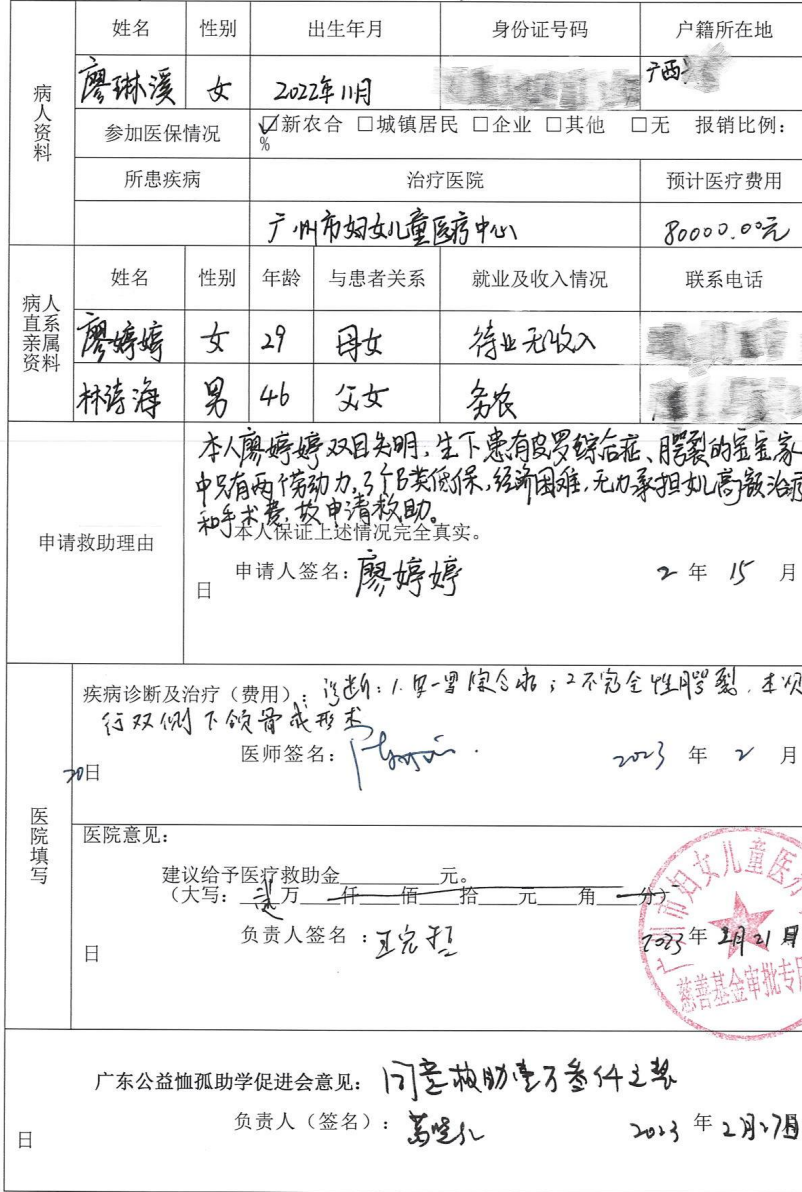 姓名 性别 出生年月 身份证号码 户籍所在地
病人资料
廖琳溪 女 2022年11月 广西
参加医保情况 ☑新农合 □城镇居民 □企业 □其他 □无 报销比例:
%
所患疾病 治疗医院 预计医疗费用
广州市妇女儿童医疗中心 80000.00元
病人直系亲属资料
姓名 性别 年龄 与患者关系 就业及收入情况 联系电话
廖婷婷 女 29 母女 待业无收入
林诗海 男 46 父女 务农
申请救助理由
本人廖婷婷双目失明,生下患有皮罗综合症、腭裂的宝宝家
中只有两个劳动力,3个B类低保,经济困难,无力承担女儿高额治疗
和手术费,故申请救助。
本人保证上述情况完全真实。
申请人签名:廖婷婷 2 年 15 月
日
医院填写
疾病诊断及治疗(费用):诊断:1.皮-罗综合征;2不完全性腭裂.本次
行双侧下颌骨成形术
医师签名: 2023 年 2 月
20日
医院意见:
建议给予医疗救助金 元。
(大写: 万 仟 佰 拾 元 角 分)
负责人签名: 2023年 2月21日
日
广州市妇女儿童医疗
慈善基金审批专用
广东公益恤孤助学促进会意见:同意救助壹万叁仟元整
负责人(签名): 2023 年 2月27日
日